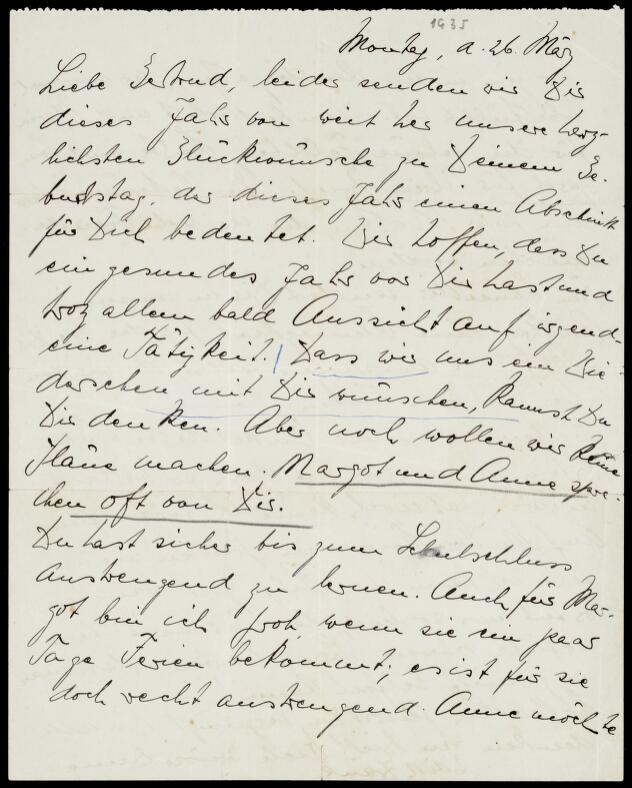 1935
Montag, d. 26. März
Liebe Gertrud, leider senden wir Dir
dieses Jahr von weit her unsere herz-
lichsten Glückwünsche zu Deinem Ge-
burtstag, der dieses Jahr einen Abschnitt
für Dich bedeutet. Wir hoffen, dass Du
ein gesundes Jahr vor Dir hast und
troz allem bald Aussicht auf irgend-
eine Tätigkeit. Dass wir uns ein Wie-
dersehen mit Dir wünschen, kannst Du
Dir denken. Aber noch wollen wir keine
Pläne machen. Margot und Anne spre-
chen oft von Dir.
Du hast sicher bis zum Schulschluss
anstrengend zu lernen. Auch für Mar-
got bin ich froh, wenn sie ein paar
Tage Ferien bekommt; es ist für sie
doch recht anstrengend. Anne möchte